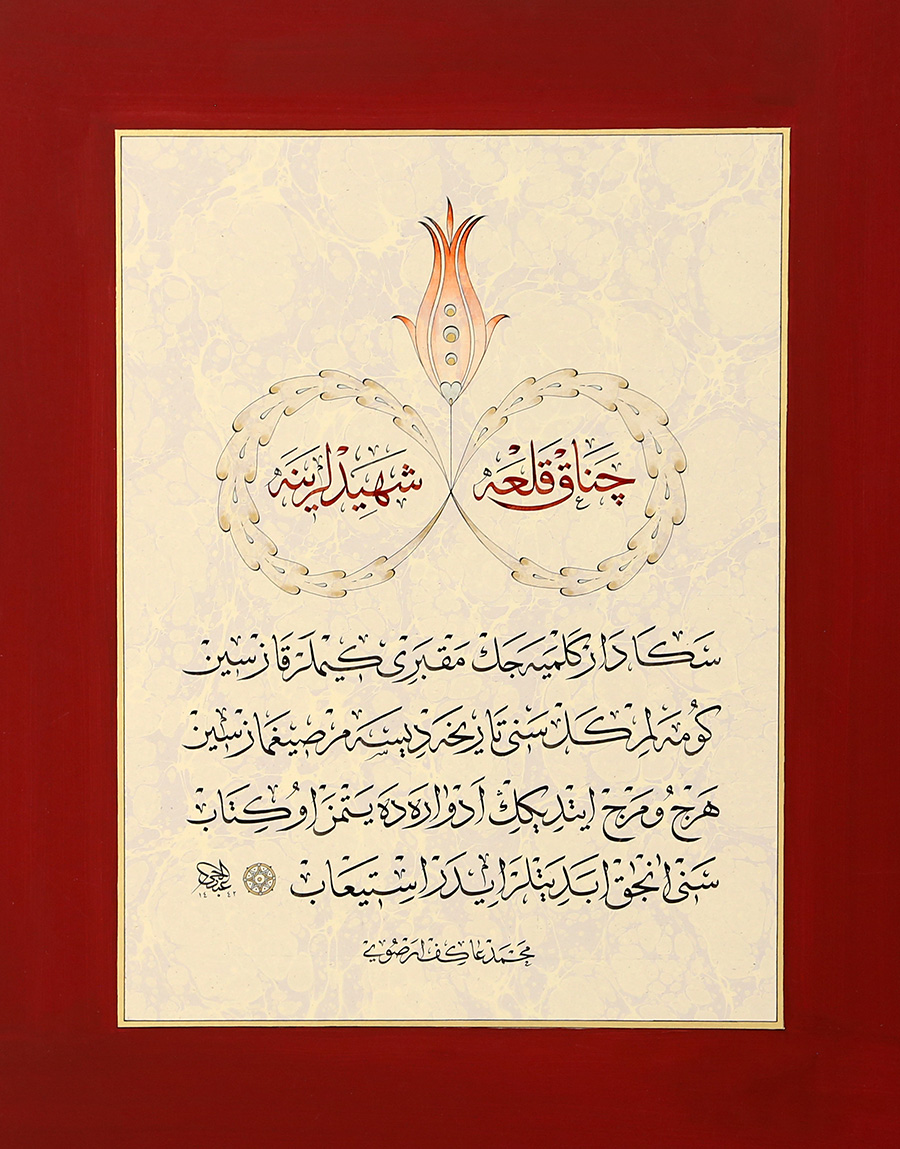 چناق قلعه شهیدلرینه
سكا دار كلمیه جك مقبری كیملر قازسین
كومه لم كل سنی تاریخه دیسه م صیغمازسین
هرج و مرج ایتدیكك ادواره ده یتمز او كتاب
سنی انجق ابدیتلر ایدر استیعاب
۱٤٤٢
محمد عاكف ارصوی